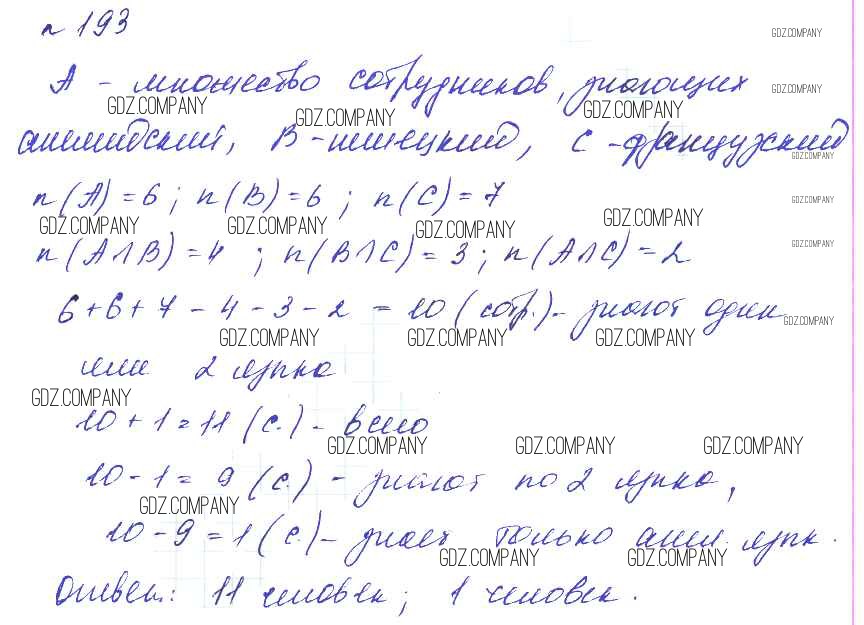 n 193
GDZ.COMPANY
A - множество сотрудников, знающих
GDZ.COMPANY
GDZ.COMPANY GDZ.COMPANY GDZ.COMPANY
английский, B - немецкий, C - французский
GDZ.COMPANY
n(A) = 6; n(B) = 6; n(C) = 7
GDZ.COMPANY
GDZ.COMPANY GDZ.COMPANY GDZ.COMPANY GDZ.COMPANY
n(A∩B) = 4; n(B∩C) = 3; n(A∩C) = 2
GDZ.COMPANY
6 + 6 + 7 - 4 - 3 - 2 = 10 (сотр.) - знают один
GDZ.COMPANY
GDZ.COMPANY GDZ.COMPANY GDZ.COMPANY
или 2 языка
GDZ.COMPANY
10 + 1 = 11 (с.) - всего
GDZ.COMPANY GDZ.COMPANY GDZ.COMPANY
10 - 1 = 9 (с.) - знают по 2 языка,
GDZ.COMPANY
10 - 9 = 1 (с.) - знает только англ. язык.
GDZ.COMPANY GDZ.COMPANY
Ответ: 11 человек; 1 человек.